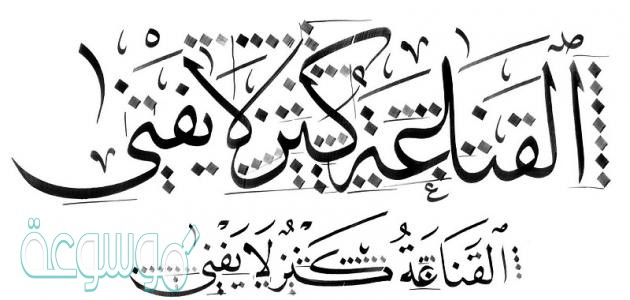 القناعة كنز لا يفنى
القَنَاعَةُ كَنْزٌ لَا يَفْنَى
موسوعة